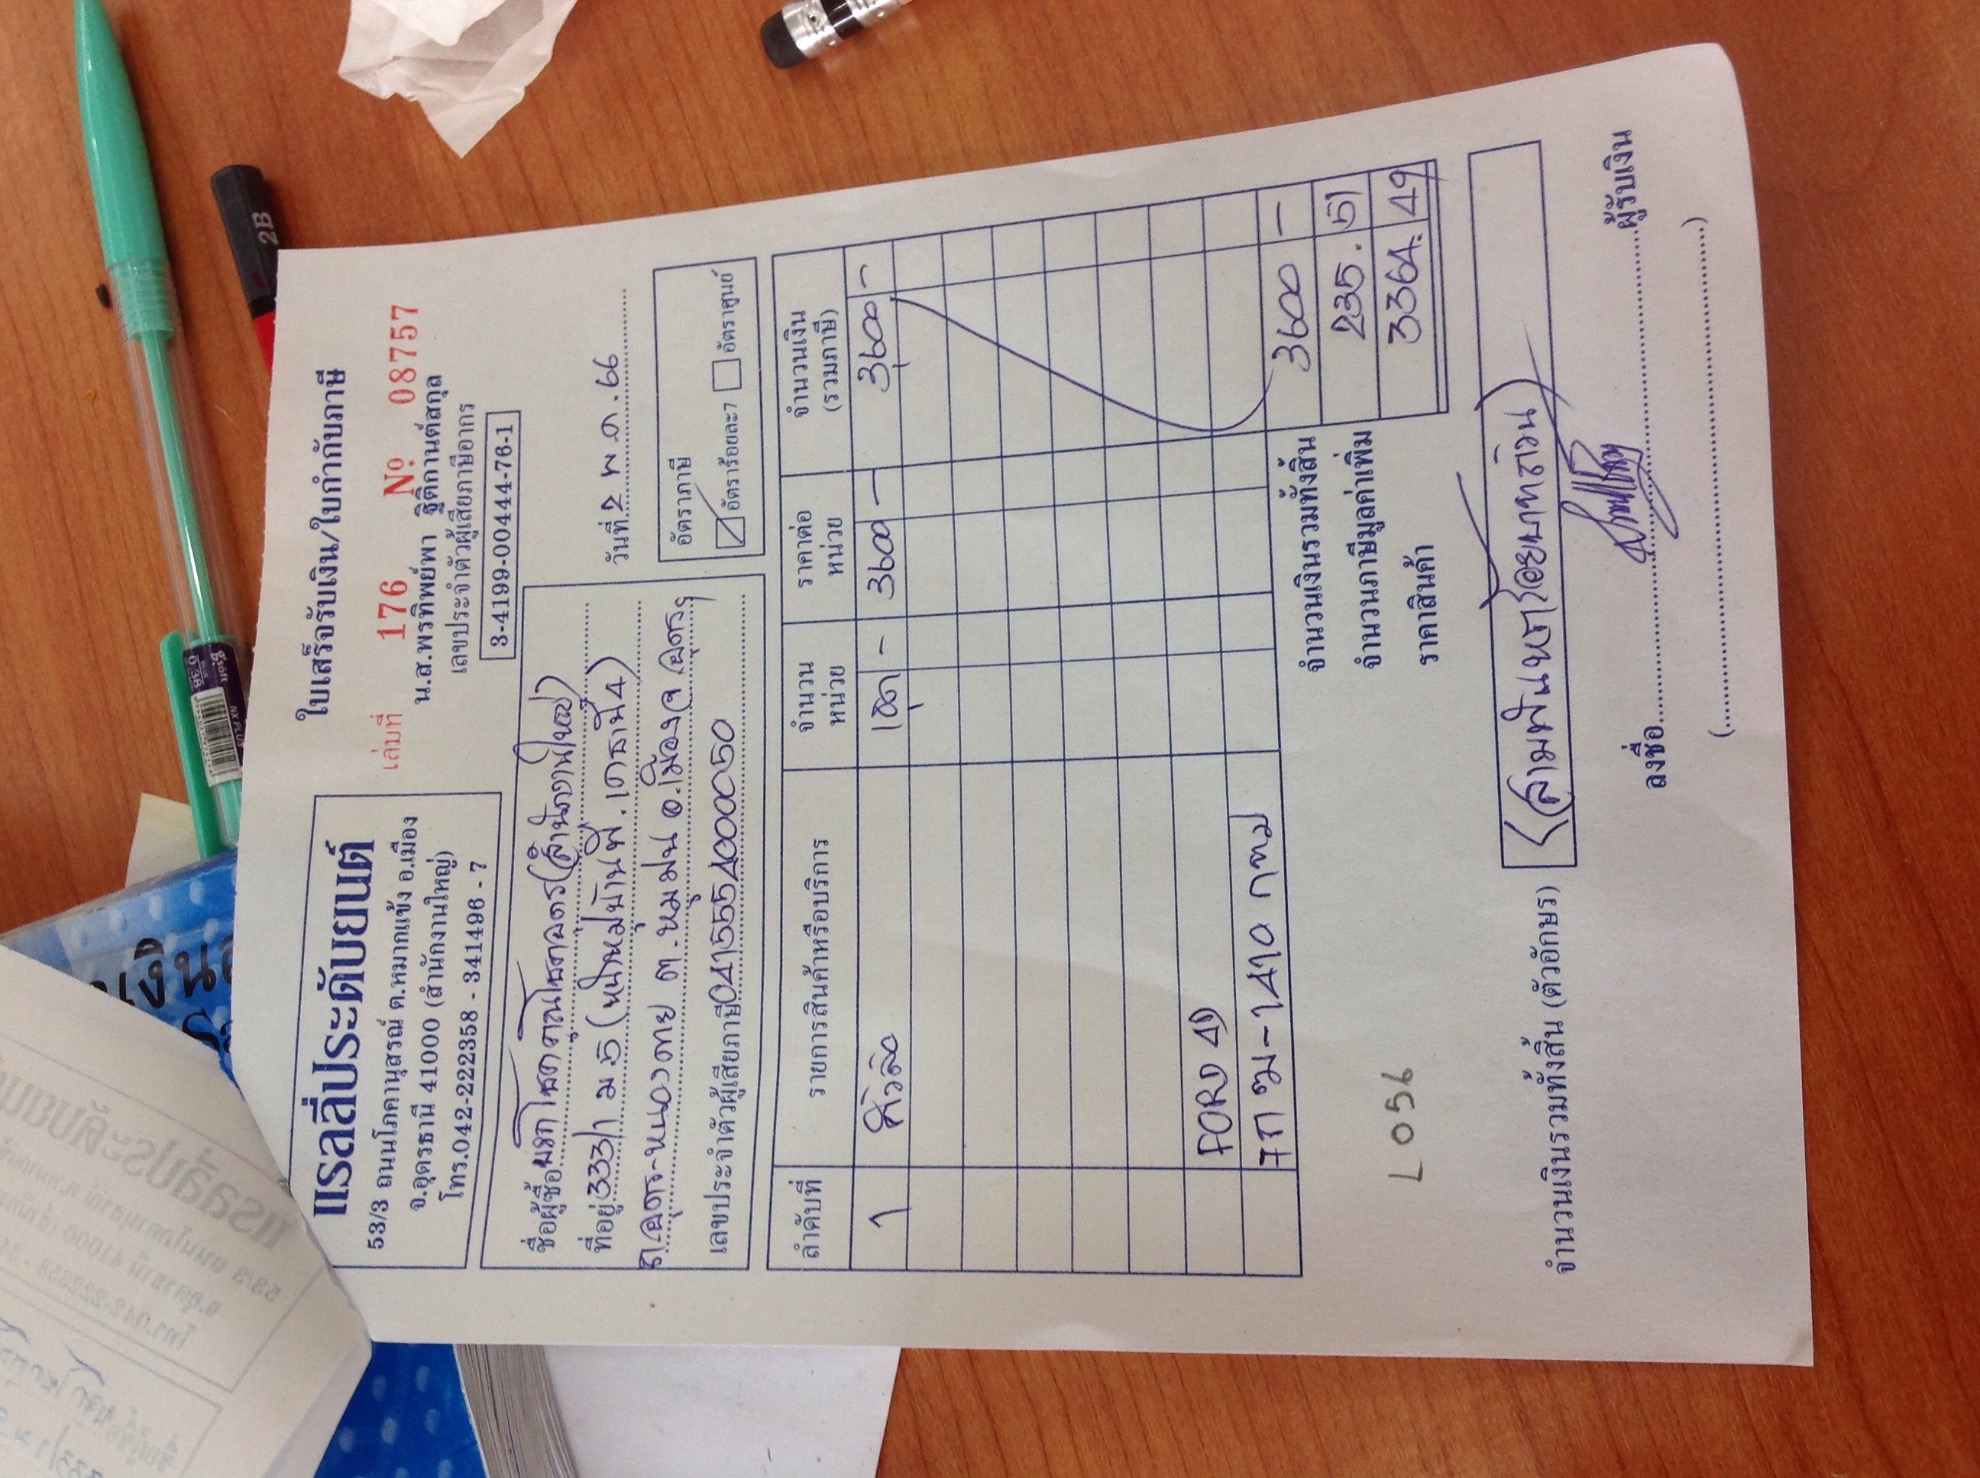 แรลลี่ประดับยนต์
53/3 ถนนโภคานุสรณ์ ต.หมากแข้ง อ.เมือง
จ.อุดรธานี 41000 (สำนักงานใหญ่)
โทร.042-222358 - 341496 - 7
ใบเสร็จรับเงิน/ใบกำกับภาษี
เล่มที่ 176 Nº 08757
น.ส.พรทิพย์พา ฐิติกานต์สกุล
เลขประจำตัวผู้เสียภาษีอากร
3-4199-00444-76-1
ชื่อผู้ซื้อ (สำนักงานใหญ่)
ที่อยู่ 333/1 ม 5 (หมู่บ้าน
ถ.อุดร-หนองคาย ต.หมูม่น อ.เมือง จ.อุดรฯ
เลขประจำตัวผู้เสียภาษี 0415554000050
วันที่ 2 พ.ค. 66
อัตราภาษี
อัตราร้อยละ7 อัตราศูนย์
ลำดับที่ รายการสินค้าหรือบริการ จำนวนหน่วย ราคาต่อหน่วย จำนวนเงิน (รวมภาษี)
1 คิ้วล้อ 1ชุด - 3600 - 3600 -
FORD 4D
7กฒ-1410 กทม
จำนวนเงินรวมทั้งสิ้น 3600 -
จำนวนภาษีมูลค่าเพิ่ม 235.51
ราคาสินค้า 3364.49
L056
จำนวนเงินรวมทั้งสิ้น (ตัวอักษร) (สามพันหกร้อยบาทถ้วน)
ลงชื่อ ผู้รับเงิน
(
)
2B